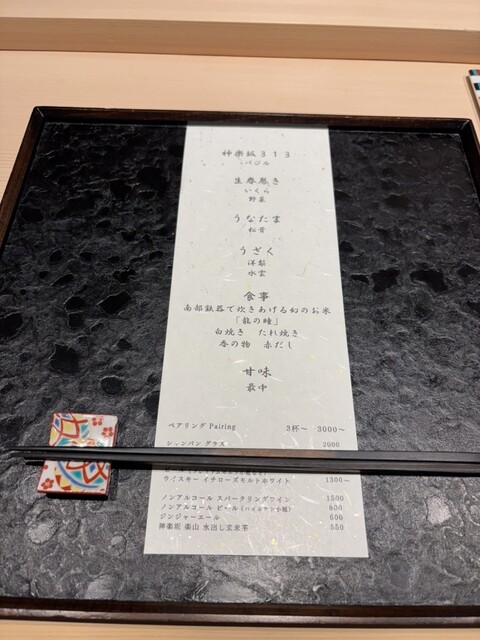 神楽坂313
バジル
生春巻き
いくら
野菜
うなたま
松茸
うざく
洋梨
水雲
食事
南部鉄器で炊きあげる幻のお米
「龍の瞳」
白焼き たれ焼き
香の物 赤だし
甘味
最中
ペアリング Pairing 3杯～ 3000～
シャンパン グラス 2000
ウイスキー イチローズモルトホワイト 1300～
ノンアルコール スパークリングワイン 1500
ノンアルコール ビール(ハイネケン小瓶) 800
ジンジャーエール 600
神楽坂 楽山 水出し玄米茶 550